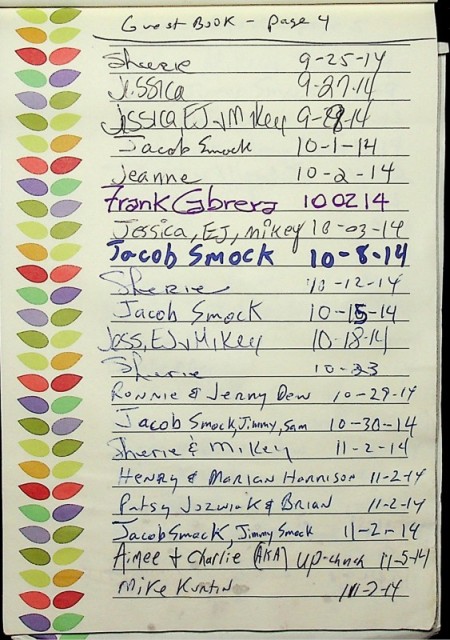 Guest Book - page 4
Sherie 9-25-14
Jessica 9-27-14
Jessica, EJ & Mikey 9-28-14
Jacob Smock 10-1-14
Jeanne 10-2-14
Frank Cabrera 10 02 14
Jessica, EJ, mikey 10-03-14
Jacob Smock 10-8-14
Sherie 10-12-14
Jacob Smock 10-15-14
Jess, EJ & Mikey 10-18-14
Sherie 10-23
Ronnie & Jenny Dew 10-29-14
Jacob Smock, Jimmy, Sam 10-30-14
Sherie & Mikey 11-2-14
Henry & Marian Harrison 11-2-14
Patsy Jozwiak & Brian 11-2-14
Jacob Smock, Jimmy Smock 11-2-14
Aimee + Charlie (AKA) up-chuck 11-5-14
Mike 11-7-14